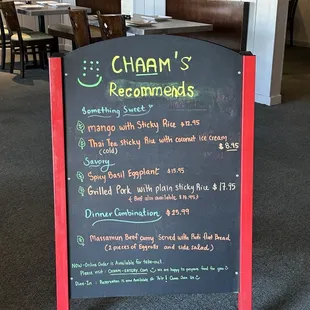 CHAAM'S
Recommends
Something Sweet
mango with Sticky Rice $12.95
Thai Tea sticky Rice with coconut ice cream
(cold) $8.95
Savory
Spicy Basil Eggplant $15.95
Grilled Pork with plain sticky Rice $17.95
( Beef also available
Dinner Combination $25.99
Massamun Beef curry Served with Roti flat Bread
(2 pieces of Eggrolls and side salad)
Now-Online Order is Available for take-out.
Please visit: we are happy to prepare food for you
Dine-In: Reservation is now Available